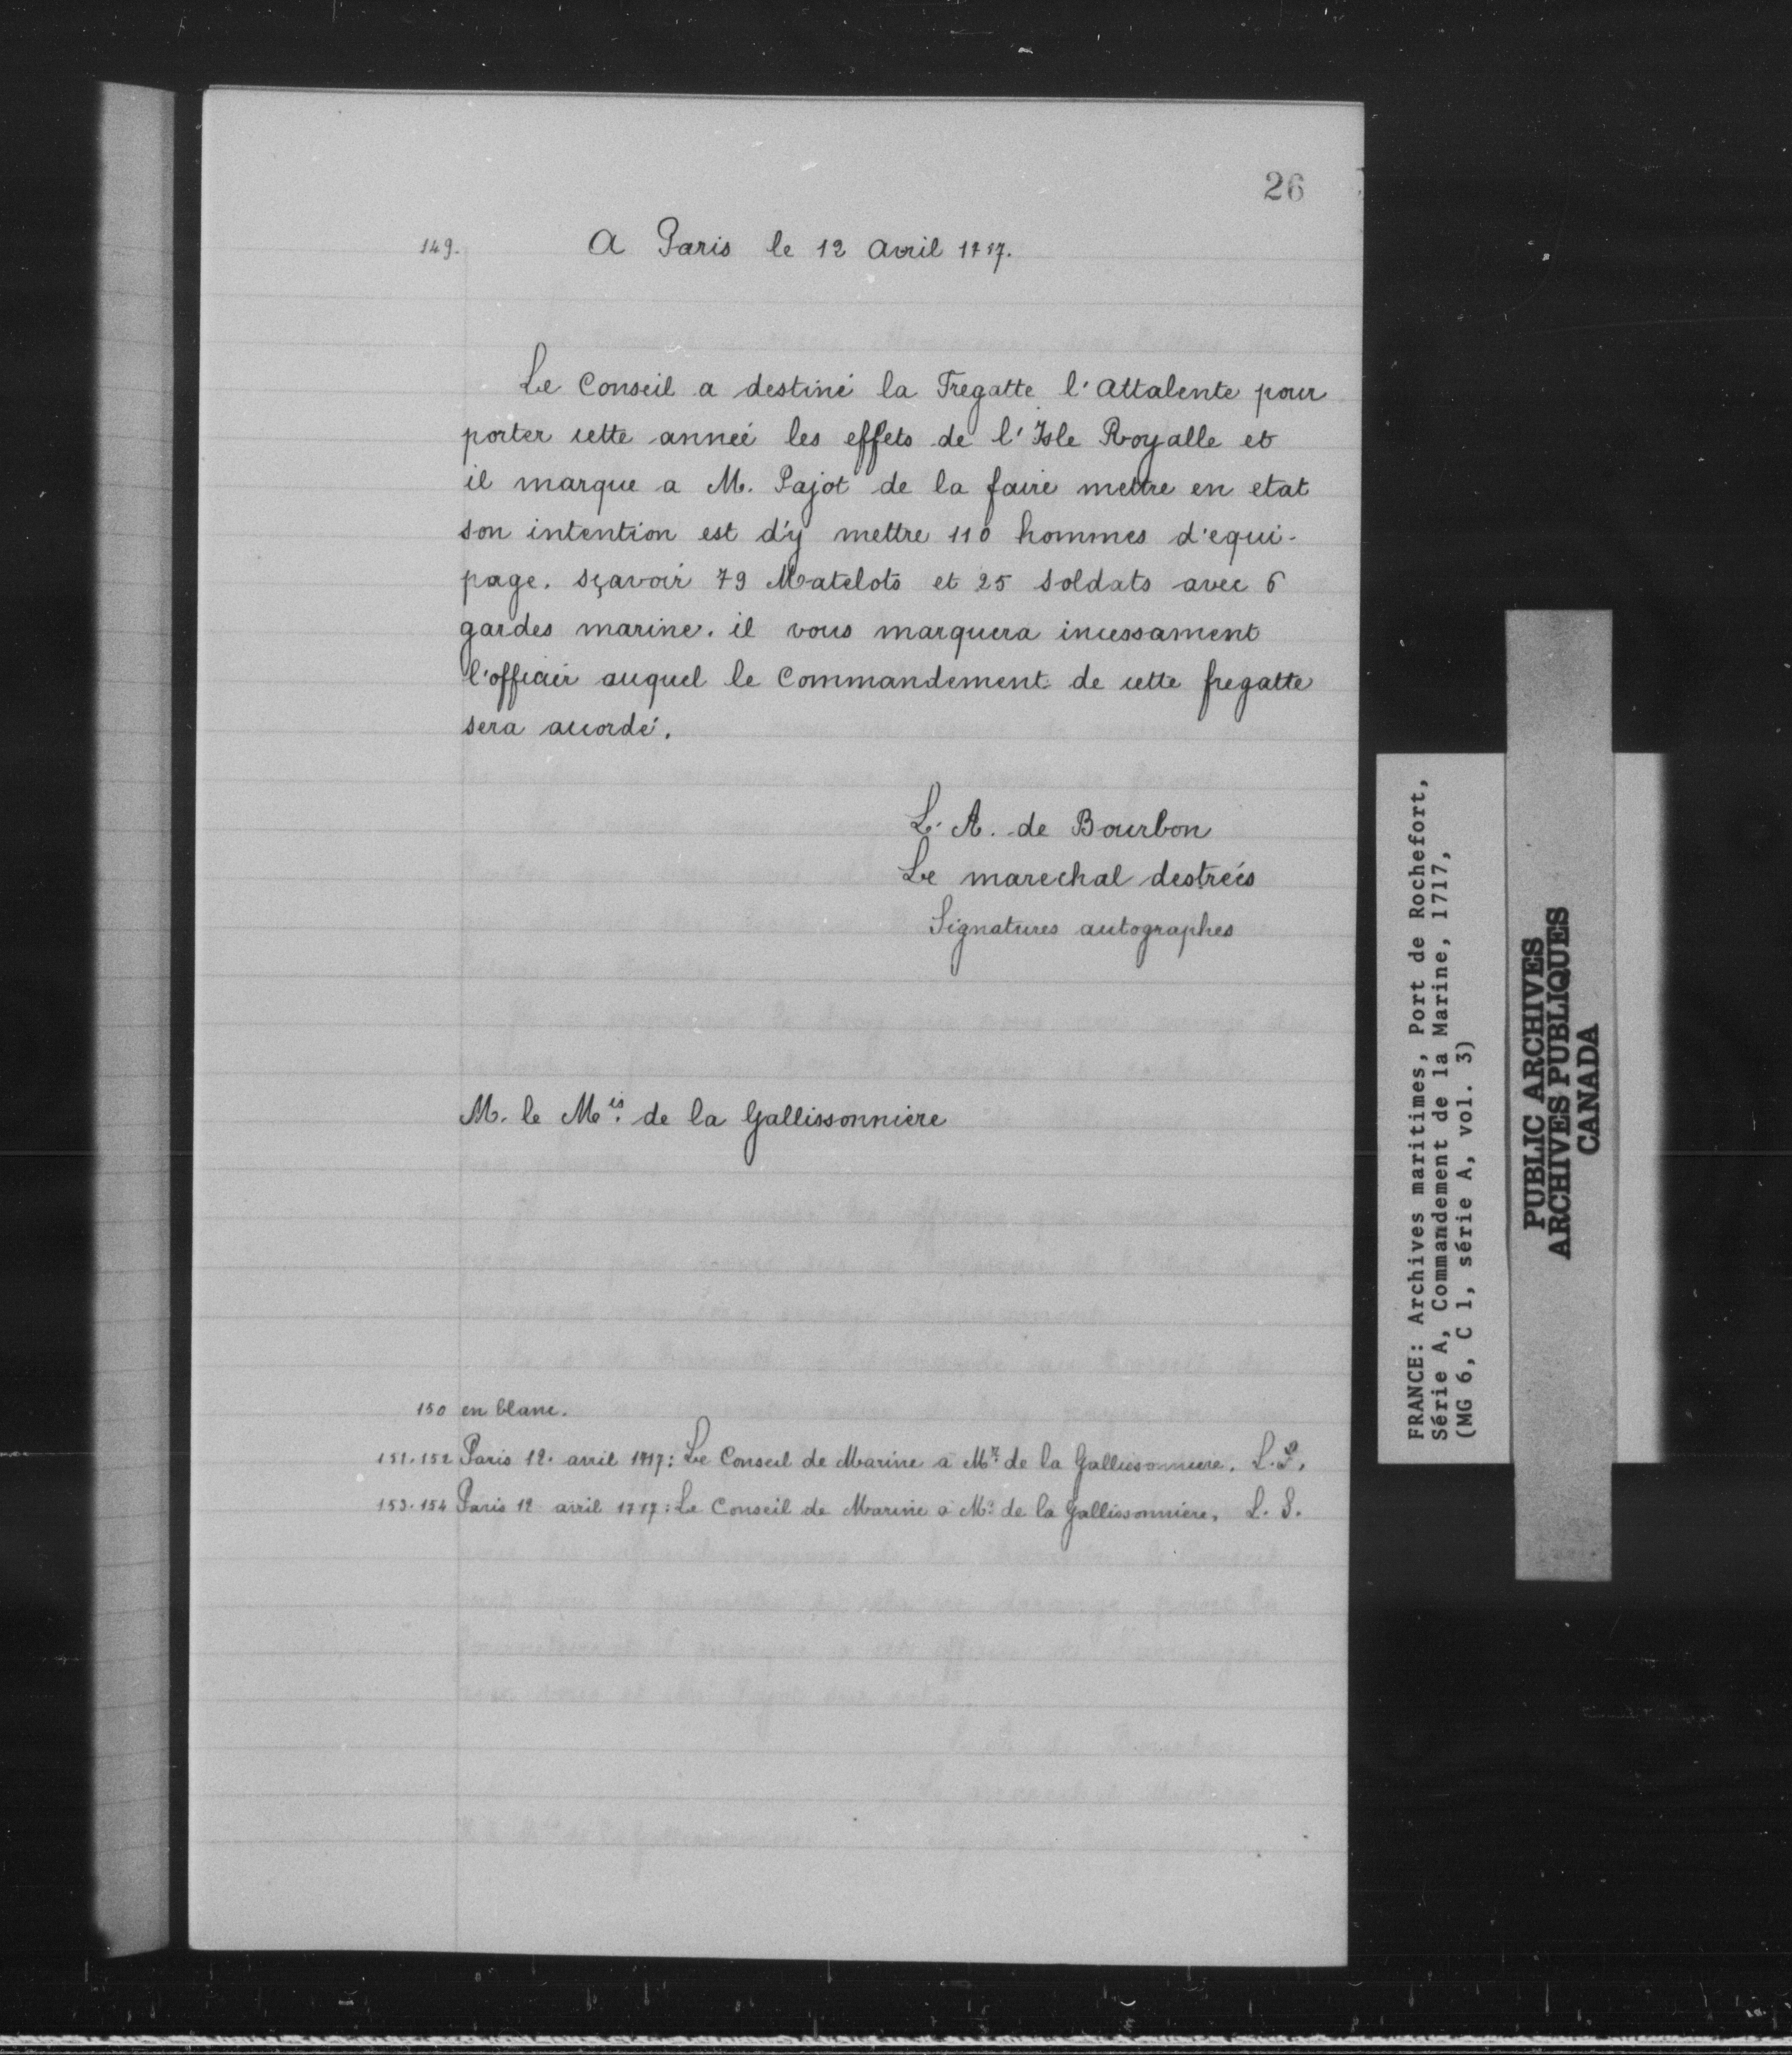 26
149. A Paris le 12 avril 1717.
Le Conseil a destiné la Fregatte l'Attalente pour
porter cette anneé les effets de l'Isle Royalle et
il marque a M. Pajot de la faire mettre en etat
son intention est d'y mettre 110 hommes d'equi-
page. sçavoir 79 Matelots et 25 soldats avec 6
gardes marine. il vous marquera incessament
l'officier auquel le Commandement de cette fregatte
sera accordé.
L. A. de Bourbon
Le marechal destrées
Signatures autographes
M. le Mis. de la Gallissonniere
150 en blanc.
151.152 Paris 12. avril 1717: Le Conseil de Marine a Mr. de la Gallissonniere. L.S.
153.154 Paris 12 avril 1717: Le Conseil de Marine a M. de la Gallissonniere, L. S.
FRANCE: Archives maritimes, Port de Rochefort,
Série A, Commandement de la Marine, 1717,
(MG 6, C 1, série A, vol. 3)
PUBLIC ARCHIVES
ARCHIVES PUBLIQUES
CANADA